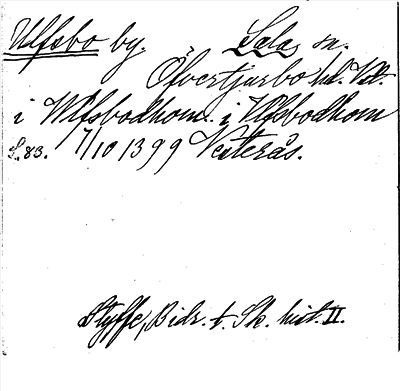 Ulfsbo by. Sala, sn.
Övertjurbo hd. Vtl.
i Wlfsbodhom. i Vlfsbodhom
S. 83. 7/10 1399 Västerås.
Styffe, Bidr. t. Sk. hist. II.